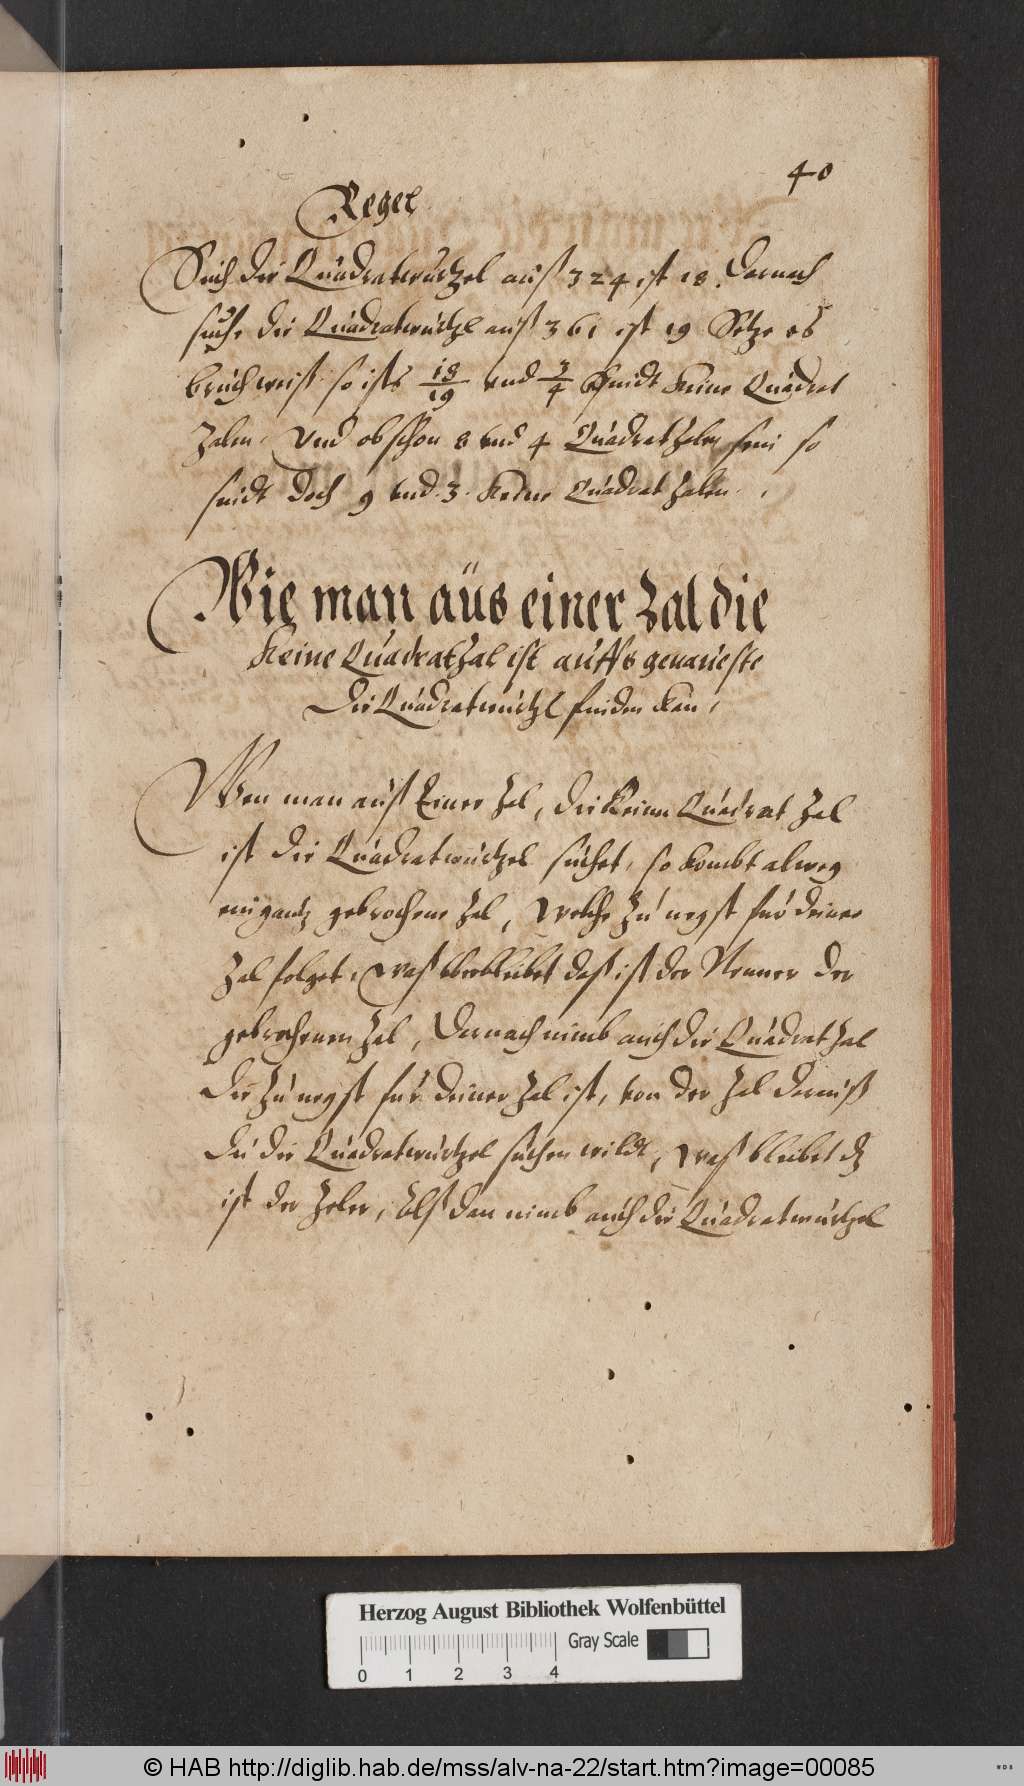 40
Regel
Such die Quadratwurtzel auß 324 ist 18. Darnach
suche die Quadratwurtzl auß 361 ist 19 Setze es
bruchweiß so ists 18/19 vnd 3/4 seindt keine Quadrat
Zalen. Vnd obschon 8 vnd 4 Quadratzalen sein so
seindt doch 9 vnd 3 keine Quadrat zalen.
Wie man aüs einer Zal die
Keine Quadratzal ist auffs genaueste
Die Quadratwurtzl finden kan,
Wen man auß Einer Zal, die keine Quadrat Zal
ist die Quadratwurtzel suchet, so kombt alweg
ein gantz gebrochene Zal, welche zu negst für deiner
Zal folget. Waß überbleibet daß ist der Nenner der
gebrochenen Zal, Darnach nimb auch die Quadratzal
Die zu negst für deiner Zal ist, von der Zal daraus
Du die Quadratwurtzel suchen wildt, waß bleibet dz
ist der Zeler, Alß dan nimb auch die Quadratwurtzel
Herzog August Bibliothek Wolfenbüttel
Gray Scale
0 1 2 3 4
© HAB http://diglib.hab.de/mss/alv-na-22/start.htm?image=00085